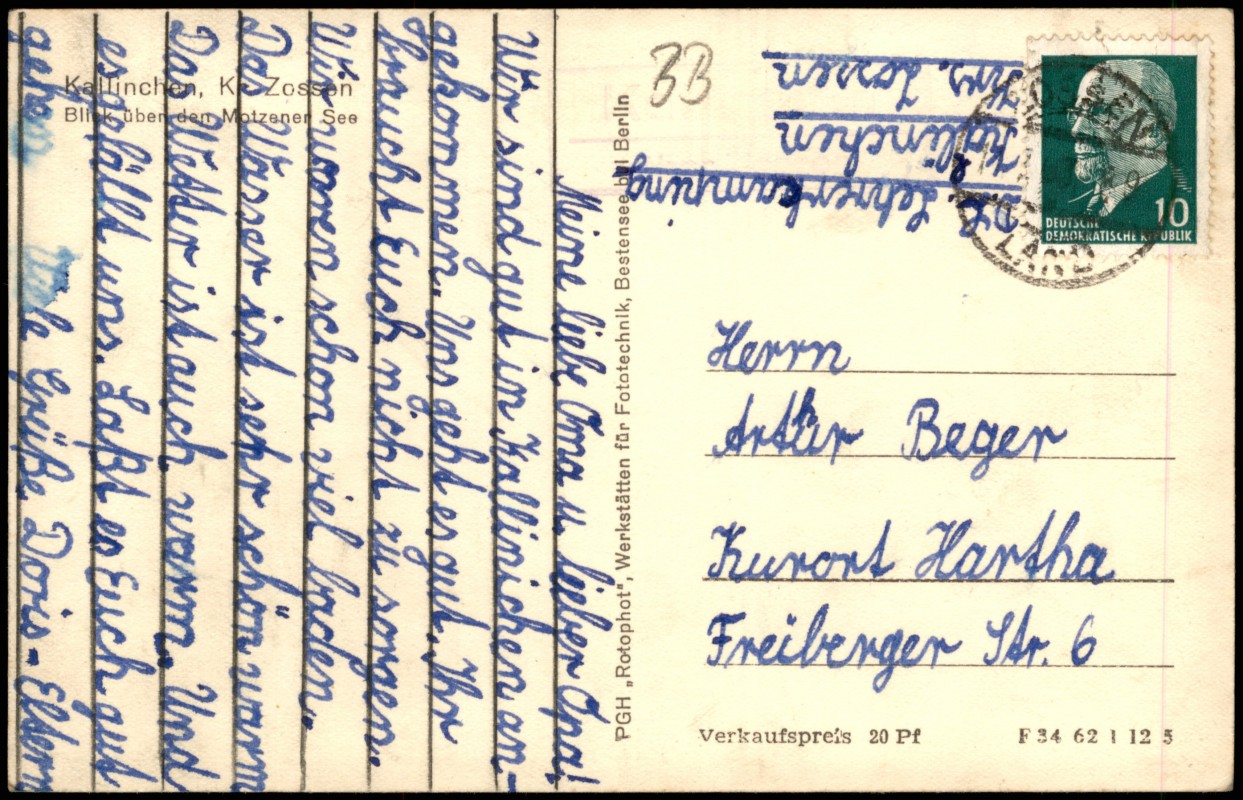 Kallinchen, Kr. Zossen
Blick über den Motzener See
Meine liebe Oma u. lieber Opa!
Wir sind gut in Kallinchen an-
gekommen. Uns geht es gut. Ihr
braucht Euch nicht zu sorgen.
Wir waren schon viel baden.
Das Wasser ist sehr schön warm
Das Wetter ist auch warm. Und
es gefällt uns. Laßt es Euch gut
gehen Viele Grüße Doris - Eltern
PGH „Rotophot", Werkstätten für Fototechnik, Bestensee bei Berlin
BB
Lehrerkamping
Kallinchen
Krs. Zossen
DEUTSCHE
DEMOKRATISCHE REPUBLIK
10
Herrn
Artur Beger
Kurort Hartha
Freiberger Str. 6
Verkaufspreis 20 Pf
F 34 62 1 12 5